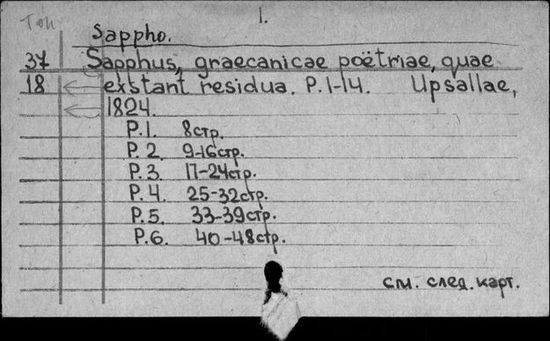 Топ
1.
Sappho.
37 Sapphus, graecanicae poëtriae, quae
18 exstant residua. P.1-14. Upsallae,
1824.
P.1. 8стр.
P.2. 9-16стр.
P.3. 17-24стр.
P.4. 25-32стр.
P.5. 33-39стр.
P.6. 40-48стр.
см. след. карт.